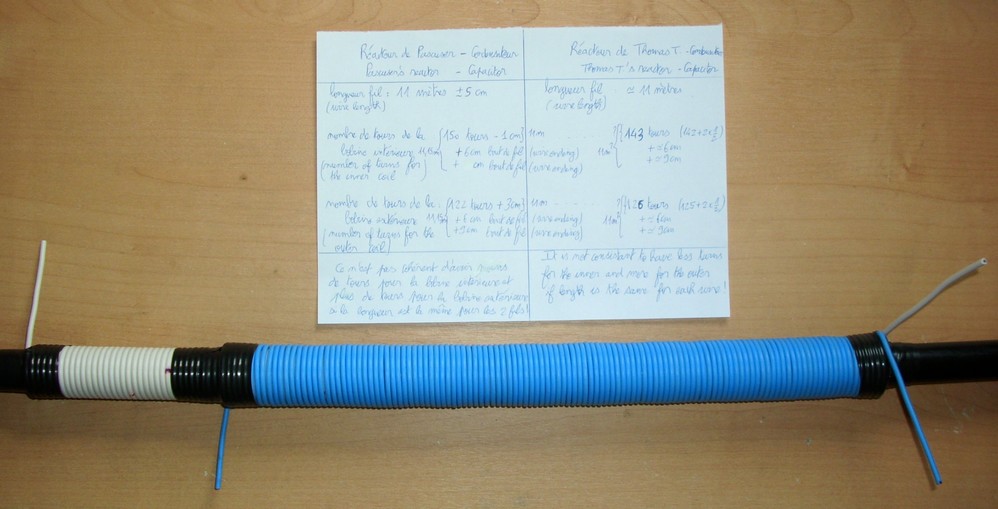 Réacteur de Pascuser - Condensateur
Pascuser's reactor - Capacitor
longueur fil : 11 mètres ± 5 cm
(wire length)
nombre de tours de la
bobine intérieure
(number of turns for
the inner coil)
{150 tours - 1 cm} 11m
+ 6 cm bout de fil (wire ending)
+ cm bout de fil (wire ending)
nombre de tours de la
bobine extérieure
(number of turns for the
outer coil)
{122 tours + 3 cm} 11m
bout de fil (wire ending)
bout de fil (wire ending)
Ce n'est pas cohérent d'avoir moins
de tours pour la bobine intérieure et
plus de tours pour la bobine extérieure
si la longueur est la même pour les 2 fils!
Réacteur de Thomas T. - Condensateur
Thomas T.'s reactor - Capacitor
longueur fil ≃ 11 mètres
(wire length)
143 tours
+ ≃ 6 cm
+ ≃ 9 cm
126 tours
+ ≃ 6 cm
+ ≃ 9 cm
It is not consistant to have less turns
for the inner and more for the outer
if length is the same for each wire!